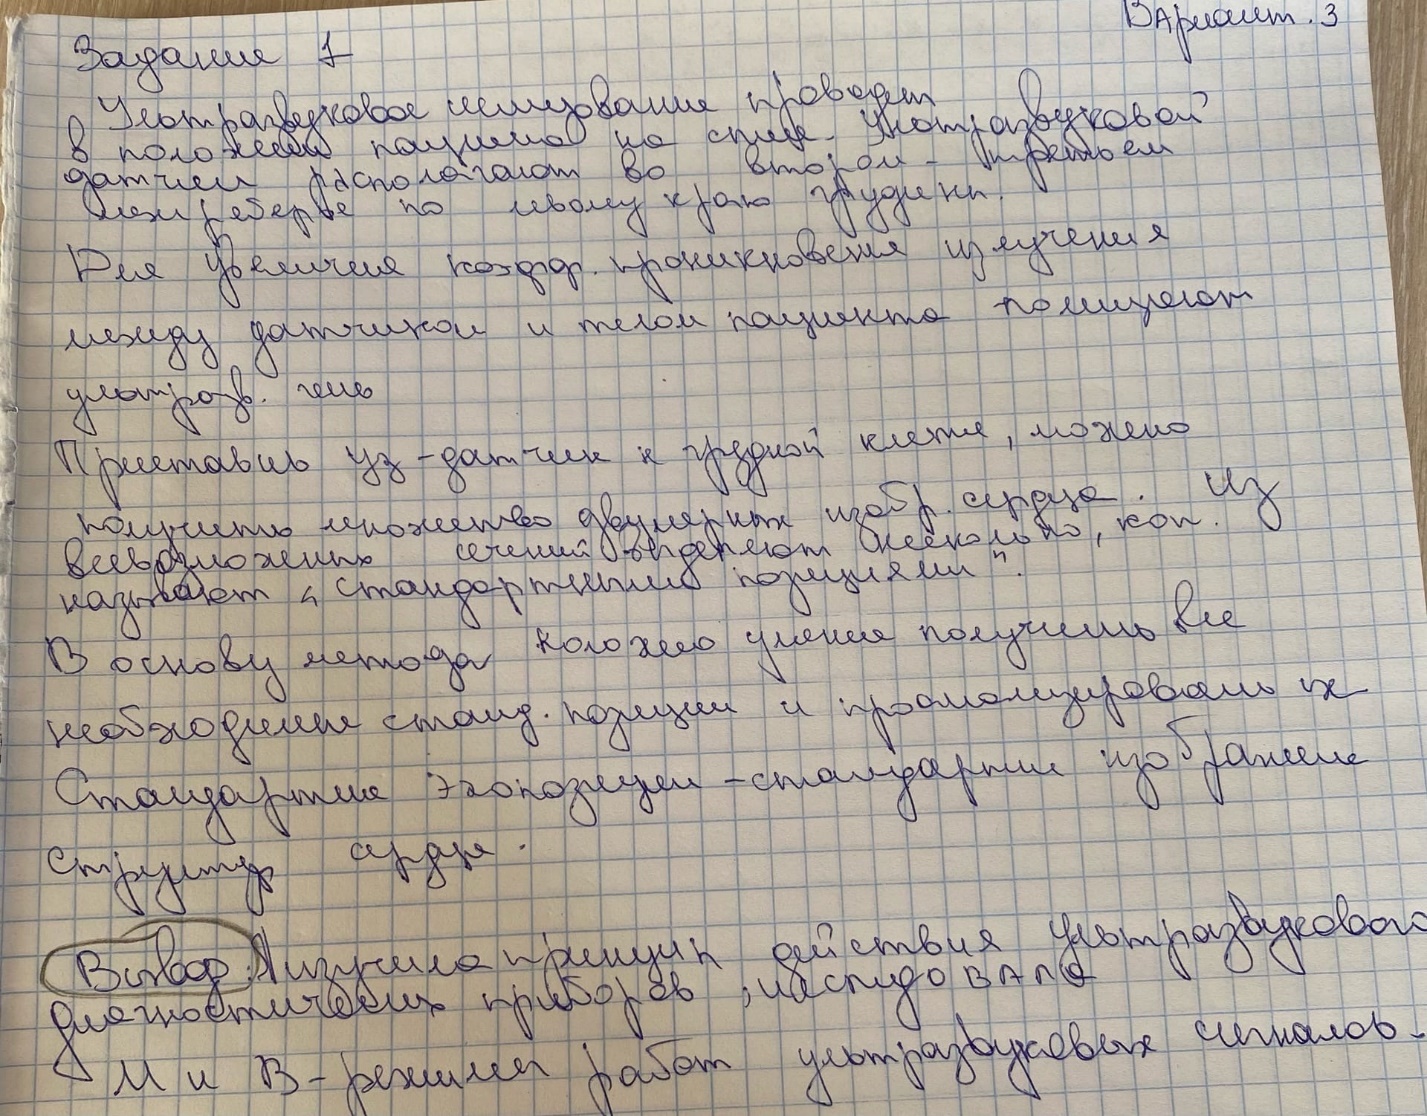 Вариант. 3
Задание 1
Ультразвуковое исследование проводят
в положении пациента на спине. Ультразвуковой
датчик располагают во втором - третьем
межреберье по левому краю грудины.
Для увеличия коэфф. проникновения излучения
между датчиком и телом пациента помещают
ультразв. гель
Приставив уз-датчик к грудной клетке, можно
получить множество двумерных изобр. сердца. Из
всевозможных сечений выделяют несколько, кот.
называют "стандартными позициями".
В основу метода положено умение получить все
необходимые станд. позиции и проанализировать их
Стандартные эхопозиции - стандартные изображение
структур сердца.
Вывод: Я изучила принцип действия ультразвукового
диагностических приборов, исследовала
М и В-режимы работ ультразвуковых сигналов.